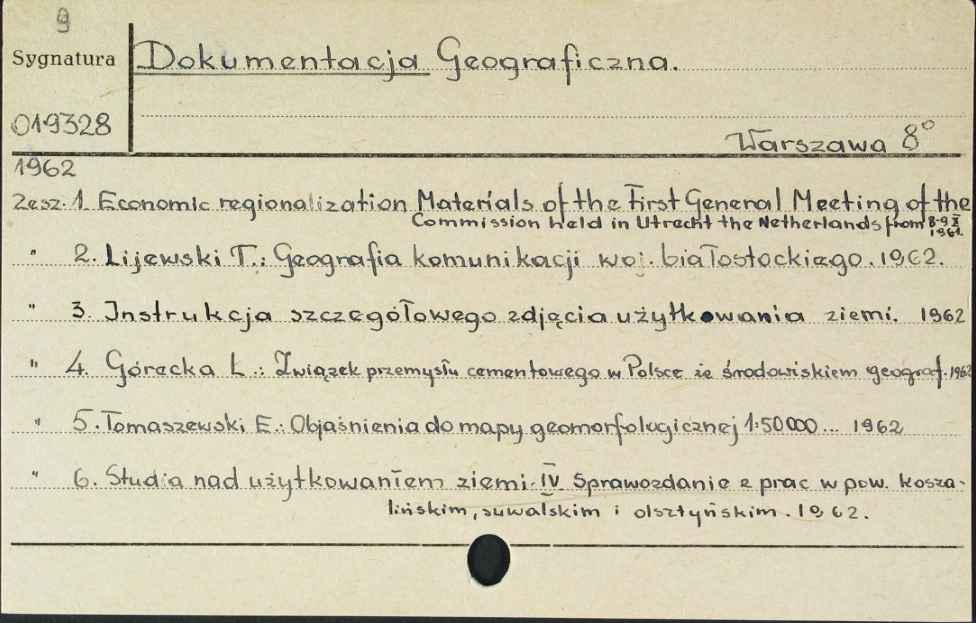 9
Sygnatura
Dokumentacja Geograficzna.
019328
Warszawa 8°
1962
Zesz. 1. Economic regionalization Materials of the First General Meeting of the
Commission held in Utrecht the Netherlands from 8-9 X
1961
" 2. Lijewski T.: Geografia komunikacji woj. białostockiego. 1962.
" 3. Instrukcja szczegółowego zdjęcia użytkowania ziemi. 1962
" 4. Górecka L.: Związek przemysłu cementowego w Polsce ze środowiskiem geograf. 1962
" 5. Tomaszewski E.: Objaśnienia do mapy geomorfologicznej 1:50 000 ... 1962
" 6. Studia nad użytkowaniem ziemi. IV Sprawozdanie z prac w pow. kosza-
lińskim, suwalskim i olsztyńskim. 1962.